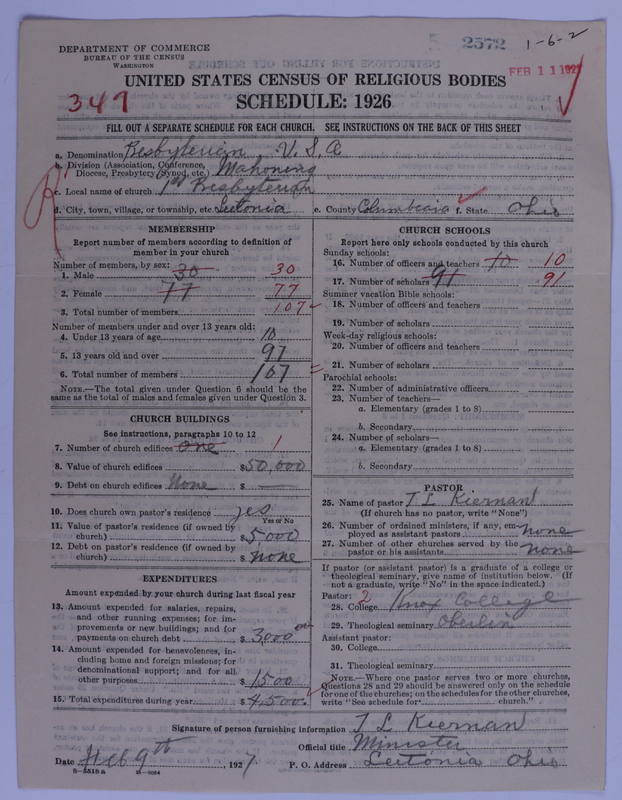 2572 1-6-2
DEPARTMENT OF COMMERCE
BUREAU OF THE CENSUS
WASHINGTON
FEB 11 192
UNITED STATES CENSUS OF RELIGIOUS BODIES
347
SCHEDULE: 1926
FILL OUT A SEPARATE SCHEDULE FOR EACH CHURCH. SEE INSTRUCTIONS ON THE BACK OF THIS SHEET
a. Denomination Presbyterian U.S.A
b. Division (Association, Conference, Diocese, Presbytery, Synod, etc.) Mahoning
c. Local name of church 1st Presbyterian
d. City, town, village, or township, etc. Leetonia e. County Columbiana f. State Ohio
MEMBERSHIP
Report number of members according to definition of
member in your church
Number of members, by sex:
1. Male 30 30
2. Female 77 77
3. Total number of members 107
Number of members under and over 13 years old:
4. Under 13 years of age 10
5. 13 years old and over 97
6. Total number of members 107
NOTE.—The total given under Question 6 should be
same as the total of males and females given under Question 3.
CHURCH BUILDINGS
See instructions, paragraphs 10 to 12
7. Number of church edifices one 1
8. Value of church edifices $50,000
9. Debt on church edifices None $ —
10. Does church own pastor's residence yes
Yes or No
11. Value of pastor's residence (if owned by
church) $5000
12. Debt on pastor's residence (if owned by
church) $ None
EXPENDITURES
Amount expended by your church during last fiscal year
13. Amount expended for salaries, repairs,
and other running expenses; for im-
provements or new buildings; and for
payments on church debt $ 3,000
14. Amount expended for benevolences, in-
cluding home and foreign missions; for
denominational support; and for all
other purposes $ 1500
15. Total expenditures during year $4,500
CHURCH SCHOOLS
Report here only schools conducted by this church
Sunday schools:
16. Number of officers and teachers 10 10
17. Number of scholars 91 91
Summer vacation Bible schools:
18. Number of officers and teachers
19. Number of scholars
Week-day religious schools:
20. Number of officers and teachers
21. Number of scholars
Parochial schools:
22. Number of administrative officers
23. Number of teachers—
a. Elementary (grades 1 to 8)
b. Secondary
24. Number of scholars—
a. Elementary (grades 1 to 8)
b. Secondary
PASTOR
25. Name of pastor T L Kiernan
(If church has no pastor, write "None")
26. Number of ordained ministers, if any, em-
ployed as assistant pastors none
27. Number of other churches served by the
pastor or his assistants none
If pastor (or assistant pastor) is a graduate of a college or
theological seminary, give name of institution below. (If
not a graduate, write "No" in the space indicated.)
Pastor: 2
28. College Knox College
29. Theological seminary Oberlin
Assistant pastor:
30. College
31. Theological seminary
NOTE.—Where one pastor serves two or more churches,
Questions 28 and 29 should be answered only on the schedule
for one of the churches; on the schedules for the other churches,
write "See schedule for church."
Signature of person furnishing information T L Kiernan
Official title Minister
Date Feb 9th, 1927 P. O. Address Leetonia Ohio
8-5518a